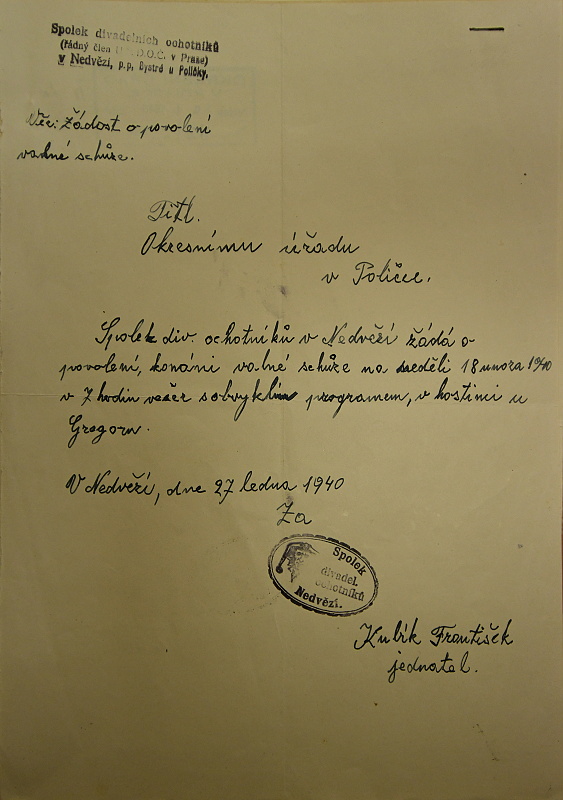 Spolek divadelních ochotníků
(řádný člen Ú.M.D.O.Č. v Praze)
v Nedvězí, p.p. Bystré u Poličky,
Věc: Žádost o povolení
valné schůze.
Titl.
Okresnímu úřadu
v Poličce.
Spolek div. ochotníků v Nedvězí žádá o
povolení, konáni valné schůze na neděli 18 unora 1940
v 7 hodin večer s obvyklím programem, v hostinci u
Gregoru.
V Nedvězí, dne 27 ledna 1940
Za
Spolek
divadel.
ochotníků
Nedvězí.
Kubík František
jednatel.